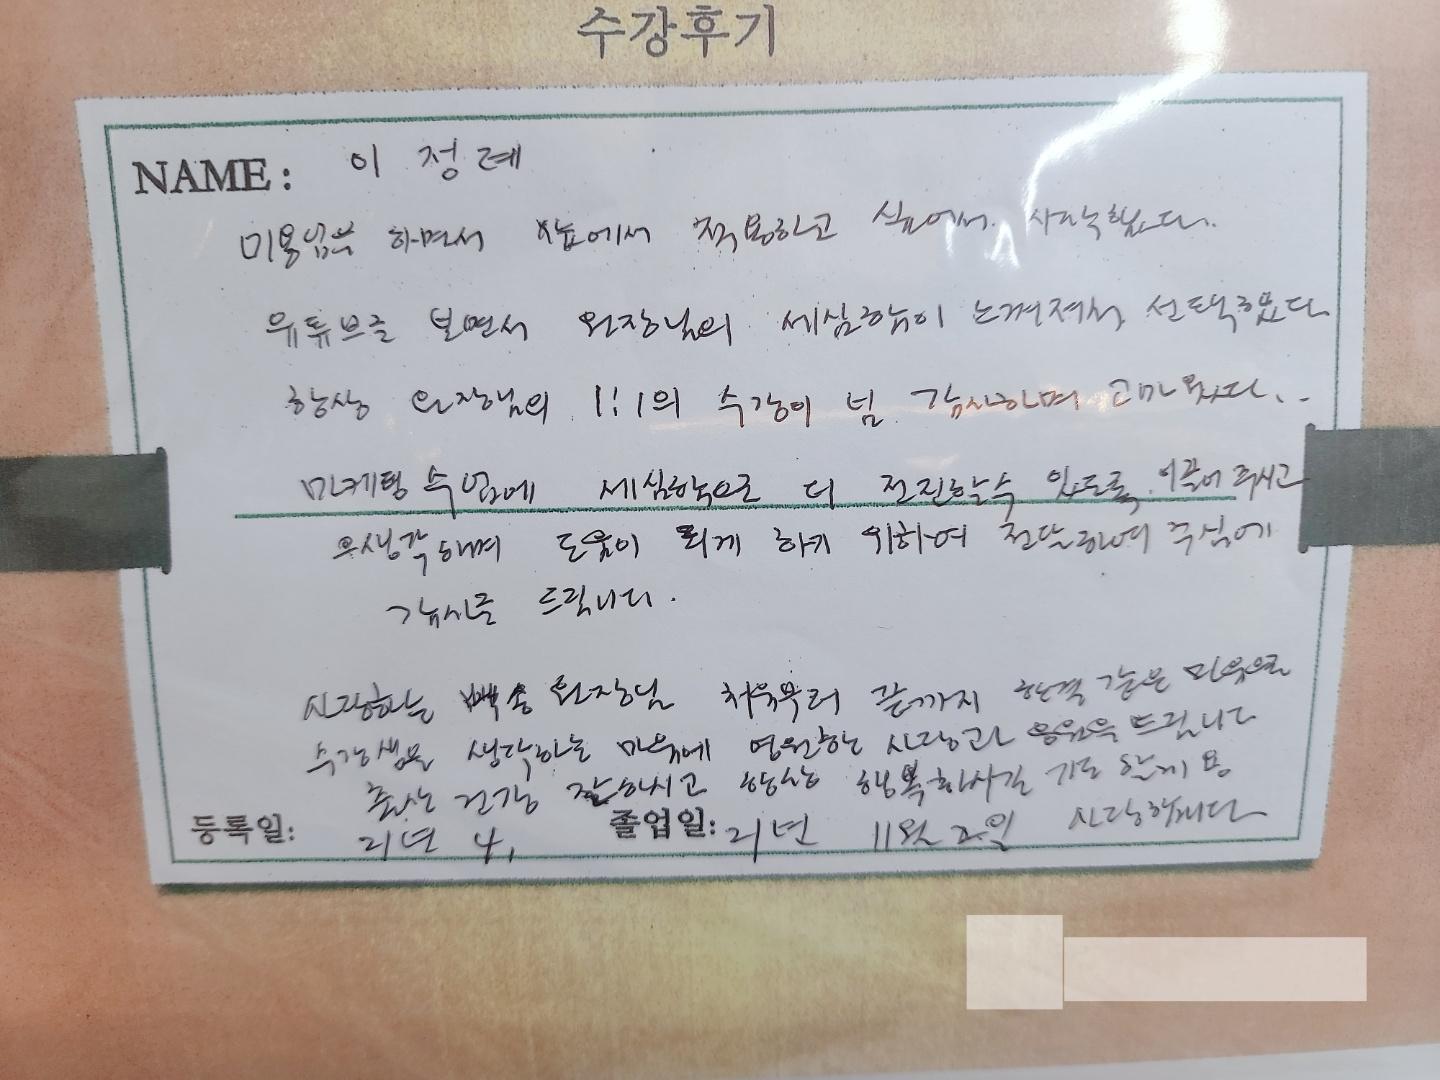 수강후기
NAME: 이정례
미용업을 하면서 샵에서 적용하고 싶어서 시작했습니다.
유튜브를 보면서 원장님의 세심함이 느껴져서 선택했다
항상 원장님의 1:1의 수강이 넘 감사하며 고마웠다..
마케팅 수업에 세심함으로 더 전진할수 있도록 이끌어 주시고
생각하며 도움이 되게 하기 위하여 전달하여 주심에
감사를 드립니다.
사랑하는 백송 원장님 처음부터 끝까지 한결 같은 마음으로
수강생을 생각하는 마음에 영원한 사랑과 응원을 드립니다
항상 건강 잘하시고 항상 행복하시길 기도 할께용
등록일: 21년 4, 졸업일: 21년 11월 20일 사랑합니다